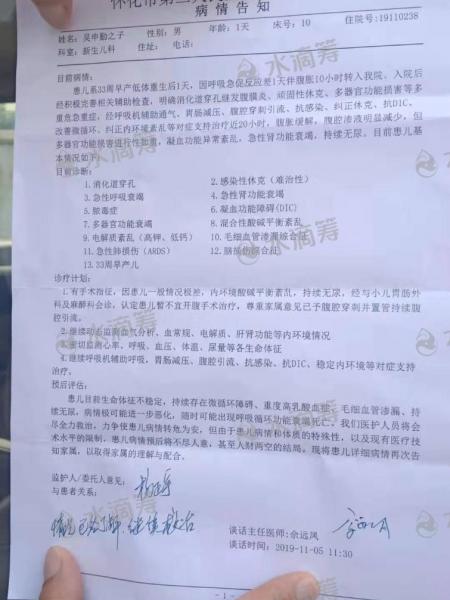 怀化市第二
病情告知
姓名:吴申勤之子 性别:男 年龄:1天 床号:10 住院号:19110238
科室:新生儿科 住址: 电话:
目前病情:
患儿系33周早产低体重生后1天,因呼吸急促反应差1天伴腹胀10小时转入我院,入院后
经积极完善相关辅助检查,明确消化道穿孔继发腹膜炎、顽固性休克、多器官功能损害等多
重危急重症,经呼吸机辅助通气、胃肠减压、腹腔穿刺引流、抗感染、纠正休克、抗DIC、
改善微循环、纠正内环境紊乱等对症支持治疗近20小时,腹胀缓解,腹腔渗液明显减少,但
多器官功能损害进行性加重,凝血功能异常紊乱,急性肾功能衰竭,持续无尿。目前患儿基
本情况如下:
目前诊断:
1.消化道穿孔 2.感染性休克(难治性)
3.急性呼吸衰竭 4.急性肾功能衰竭
5.脓毒症 6.凝血功能障碍(DIC)
7.多器官功能衰竭 8.混合性酸碱平衡紊乱
9.电解质紊乱(高钾、低钙) 10.毛细血管渗漏综合征
11.急性肺损伤(ARDS) 12.脑损伤综合征
13.33周早产儿
诊疗计划:
1.有手术指征,因患儿一般情况极差,内环境酸碱平衡紊乱,持续无尿,经与小儿胃肠外
科及麻醉科会诊,认定患儿暂不宜开腹手术治疗,尊重家属意见已予腹腔穿刺并置管持续腹
腔引流。
2.继续动态监测血气分析、血常规、电解质、肝肾功能等内环境情况
3.密切监测心率、呼吸、血压、体温、尿量等各生命体征
4.继续呼吸机辅助呼吸,胃肠减压、腹腔引流、抗感染、抗DIC、稳定内环境等对症支持
治疗。
预后评估:
患儿目前生命体征不稳定,持续存在微循环障碍、重度高乳酸血症、毛细血管渗漏、持
续无尿,病情极可能进一步恶化,随时可能出现呼吸循环功能衰竭死亡。我们医护人员将会
尽全力救治,力争使患儿转危为安,但由于患儿病情和体质的特殊性,以及现有医疗技
术水平的限制,患儿病情预后将不尽人意,甚至人财两空的结局。现将患儿详细病情再次告
知家属,以取得家属的理解与配合。
监护人/委托人意见:
与患者关系:
情况已了解,继续救治
谈话主任医师:佘远凤
谈话时间:2019-11-05 11:30
- 1 -
水滴筹